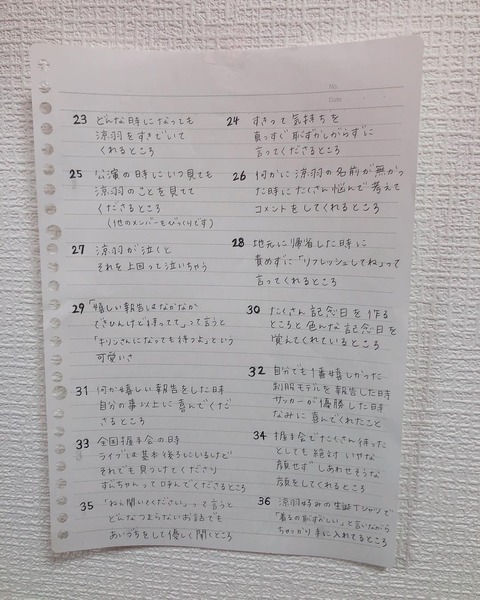 No.
Date
23 どんな時になっても
涼羽をすきでいて
くれるところ
24 すきって気持ちを
真っすぐ恥ずかしがらずに
言ってくださるところ
25 公演の日にいつ見ても
涼羽のことを見てて
くださるところ
(他のメンバーもびっくりです)
26 何かに涼羽の名前が無かっ
た時にたくさん悩んで考えて
コメントをしてくれるところ
27 涼羽が泣くと
それを上回って泣いちゃう
28 地元に帰省した時に
責めずに「リフレッシュしてね」って
言ってくれるところ
29 「嬉しい報告はなかなか
できひんけど待ってて」って言うと
「キリンさんになっても待つよ」という
可愛いさ
30 たくさん記念日を作る
ところと色んな記念日を
覚えてくれているところ
31 何か嬉しい報告をした時
自分の事以上に喜んでくだ
さるところ
32 自分でも1番嬉しかった
制服モデルを報告した時
サッカーが優勝した時
なみに喜んでくれたこと
33 全国握手会の時
ライブは基本後ろにいるけど
それでも見つけてくださり
すんちゃんって呼んでくださるところ
34 握手会でたくさん待った
としても絶対いやな
顔せずしあわせそうな
顔をしてくれるところ
35 「ねえ聞いてください」って言うと
どんなつまらないお話でも
あいづちをして優しく聞くところ
36 涼羽好みの生誕Tシャツで
「着るの恥ずかしい」と言いながら
ちゃっかり手に入れてるところ